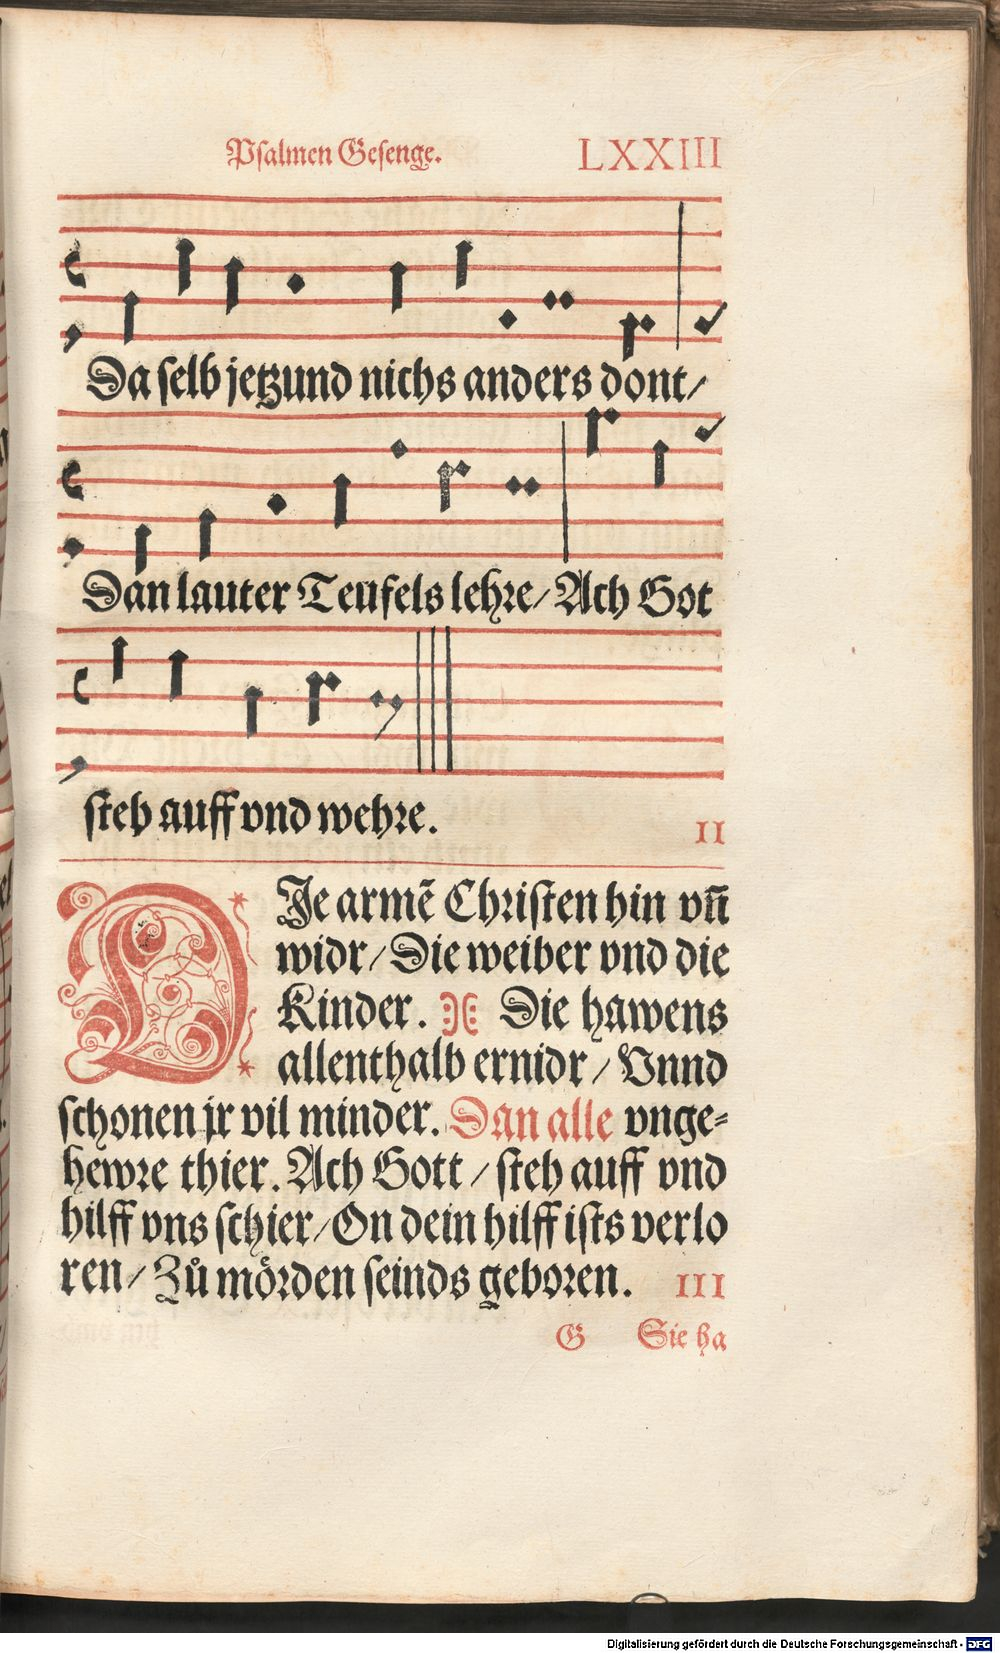 Psalmen Gesenge. LXXIII
Da selb jetzund nichs anders dont/
Dan lauter Teufels lehre/ Ach Got
steh auff vnd wehre.
II
DJe armē Christen hin vn̄
widr/ Die weiber vnd die
Kinder. Die hawens
allenthalb ernidr/ Vnnd
schonen jr vil minder. Dan alle vnge-
hewre thier. Ach Gott/ steh auff vnd
hilff vns schier/ On dein hilff ists verlo
ren/ Zů mörden seinds geboren. III
G Sie ha
Digitalisierung gefördert durch die Deutsche Forschungsgemeinschaft - DFG